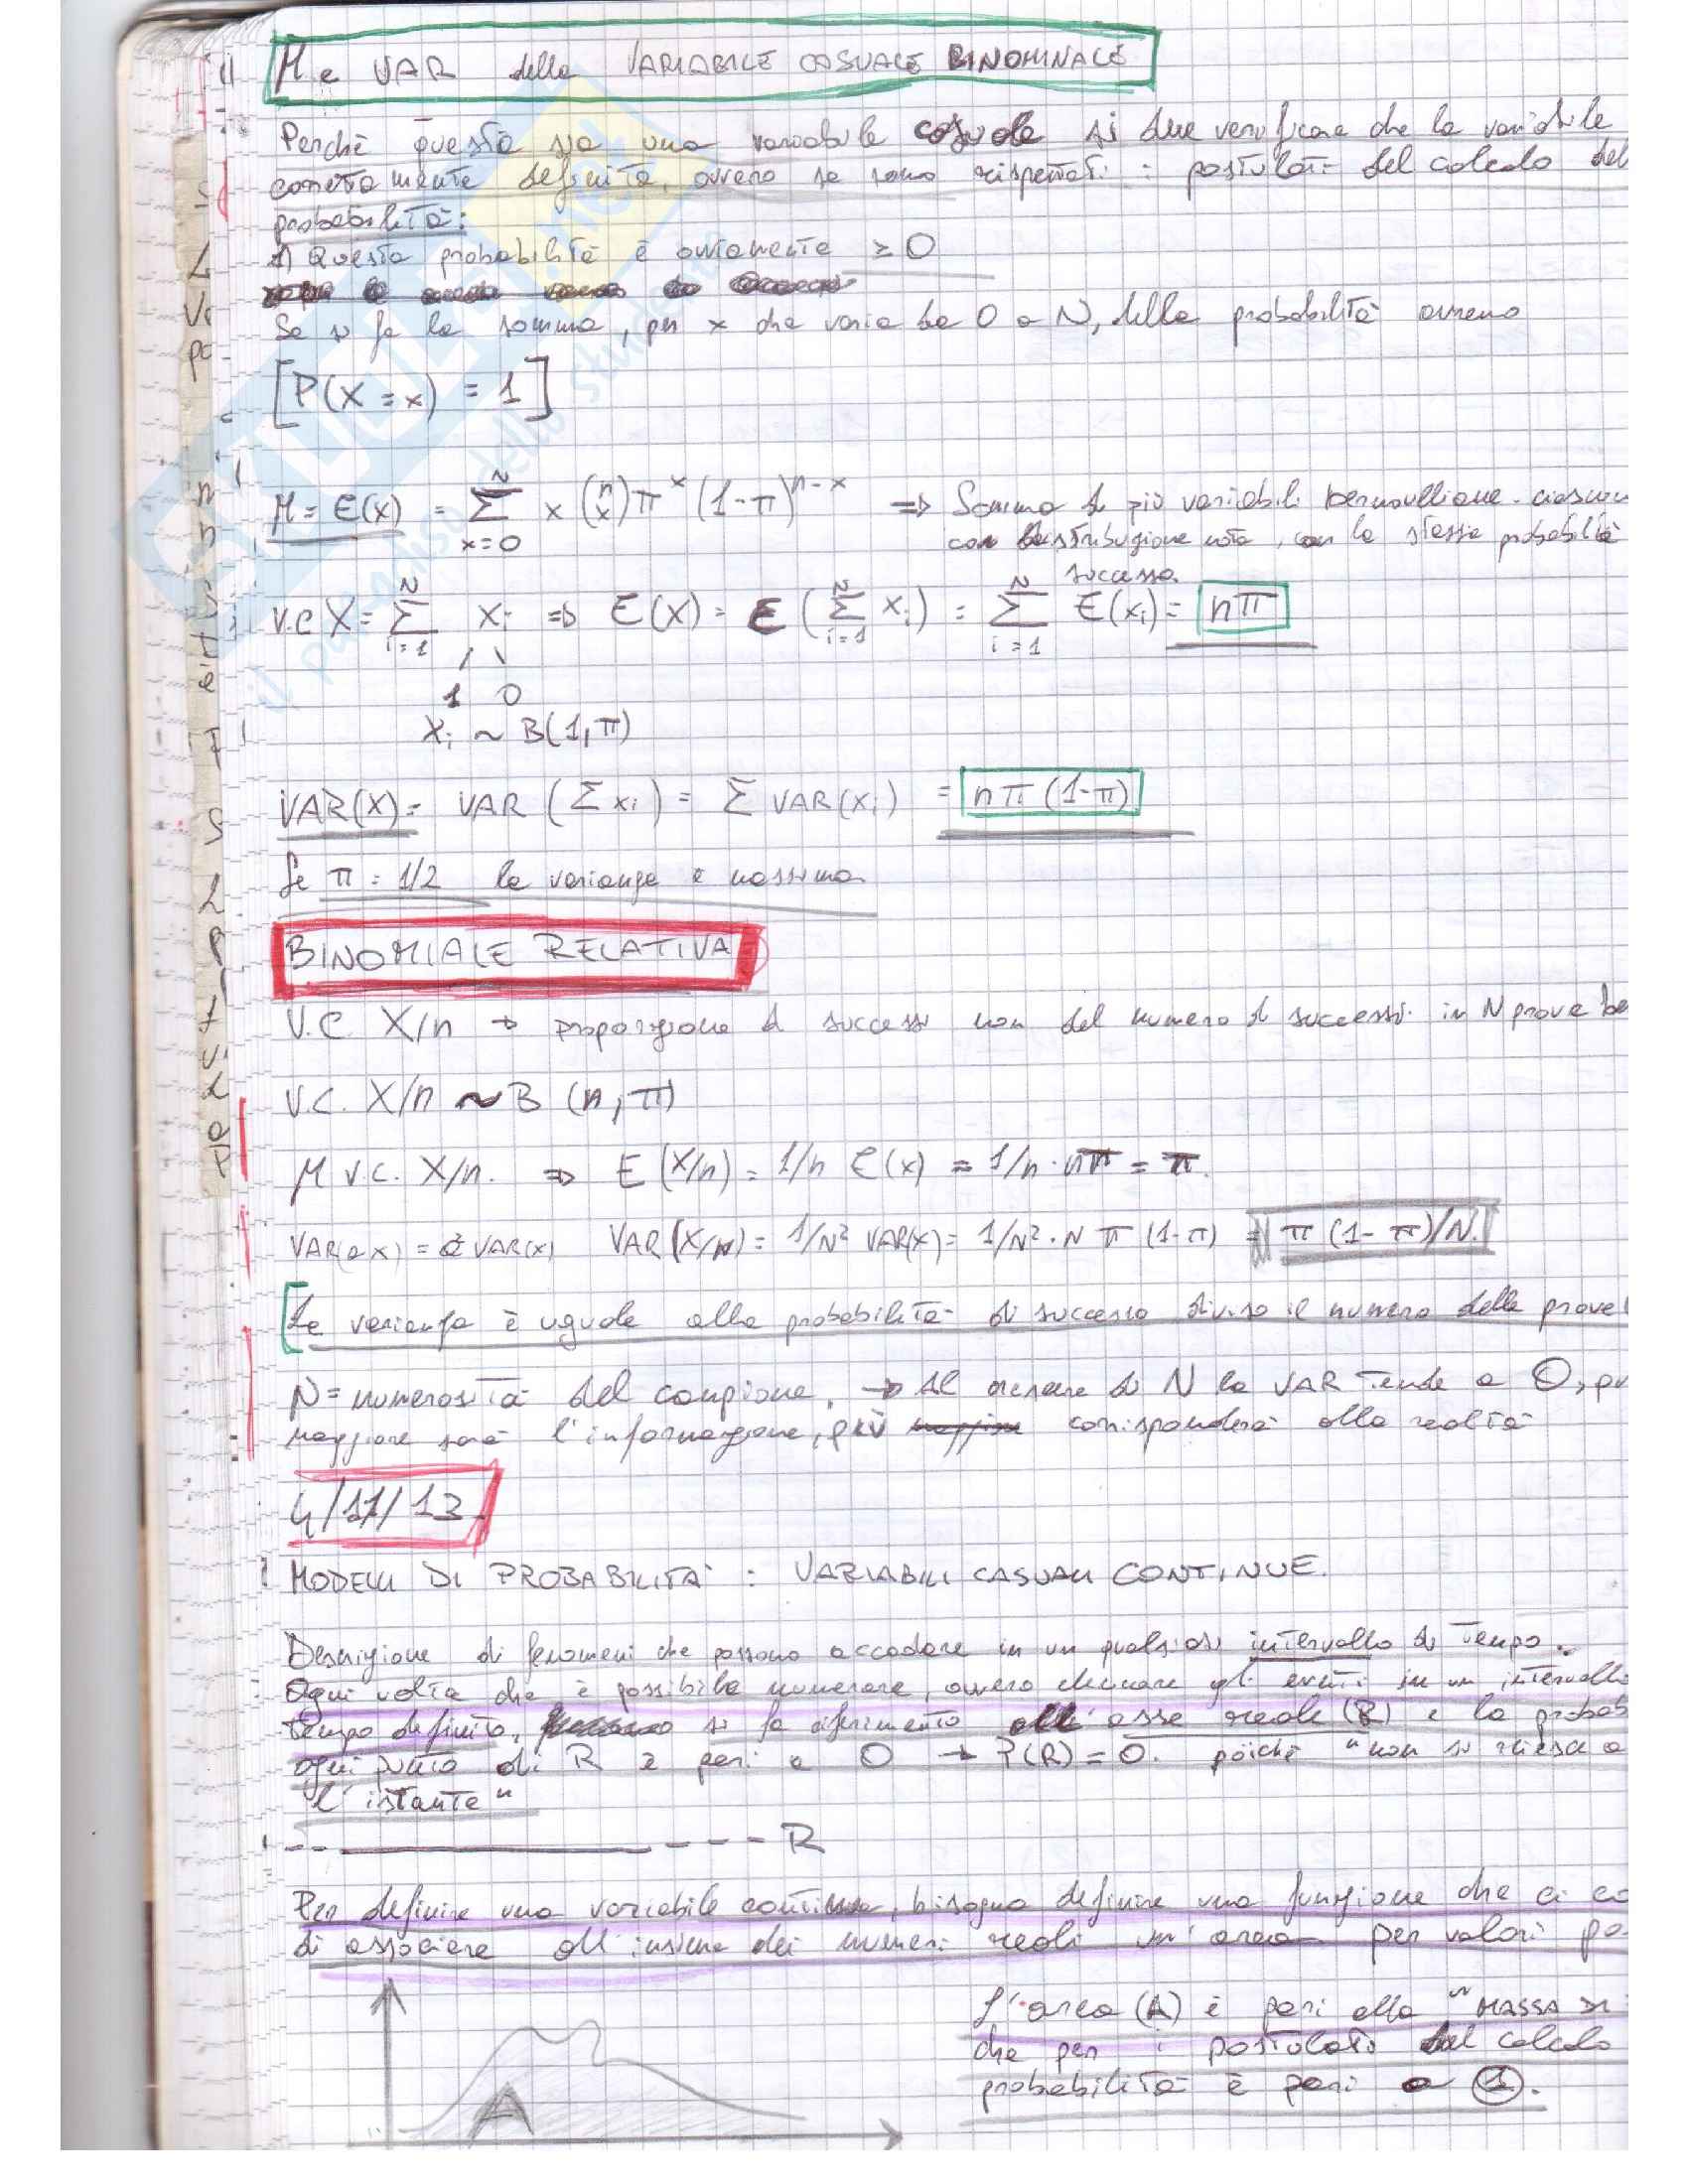 M e VAR della VARIABILE CASUALE BINOMINALE
Perchè questa sia una variabile casuale si deve verificare che la variabile
correttamente definita, ovvero se sono rispettati i postulati del calcolo del
probabilità:
1) Questa probabilità è ovviamente ≥ 0
Se si fa la somma, per x che varia da 0 a N, della probabilità ovvero
[P(X = x) = 1]
M = E(x) = Σ x=0 N x (n x) π^x (1-π)^n-x => Somma di più variabili bernoulliane ciascun
con distribuzione nota, con la stessa probabilità
successo.
V.C X = Σ i=1 N Xi => E(X) = E (Σ i=1 N xi) = Σ i=1 N E(xi) = nπ
1 0
Xi ~ B(1,π)
VAR(X) = VAR (Σ xi) = Σ VAR(xi) = nπ (1-π)
Se π = 1/2 la varianza è massima
BINOMIALE RELATIVA
V.C. X/n → proporzione di successi non del numero di successi in N prove be
V.C. X/n ~ B (n, π)
M V.C. X/n. => E (X/n) = 1/n E(x) = 1/n · nπ = π.
VAR(a x) = a² VAR(x) VAR (X/N) = 1/N² VAR(X) = 1/N² · N π (1-π) = π (1-π)/N.
[La varianza è uguale alla probabilità di successo diviso il numero delle prove
N = numerosità del campione. → Al crescere di N la VAR tende a 0, più
maggiore sarà l'informazione, più corrisponderà alla realtà
4/11/13
MODELLI DI PROBABILITA' : VARIABILI CASUALI CONTINUE.
Descrizione di fenomeni che possono accadere in un qualsiasi intervallo di tempo.
Ogni volta che è possibile numerare, ovvero elencare gli eventi in un intervallo
tempo definito, si fa riferimento all'asse reale (R) e la probab
ogni punto di R è pari a 0 → P(R) = 0. poichè "non si riesce a
l'istante"
R
Per definire una variabile continua, bisogna definire una funzione che ci co
di associare all'insieme dei numeri reali un'area per valori po
L'area (A) è pari alla "MASSA DI
che per i postulati del calcolo
probabilità è pari a 1.
A